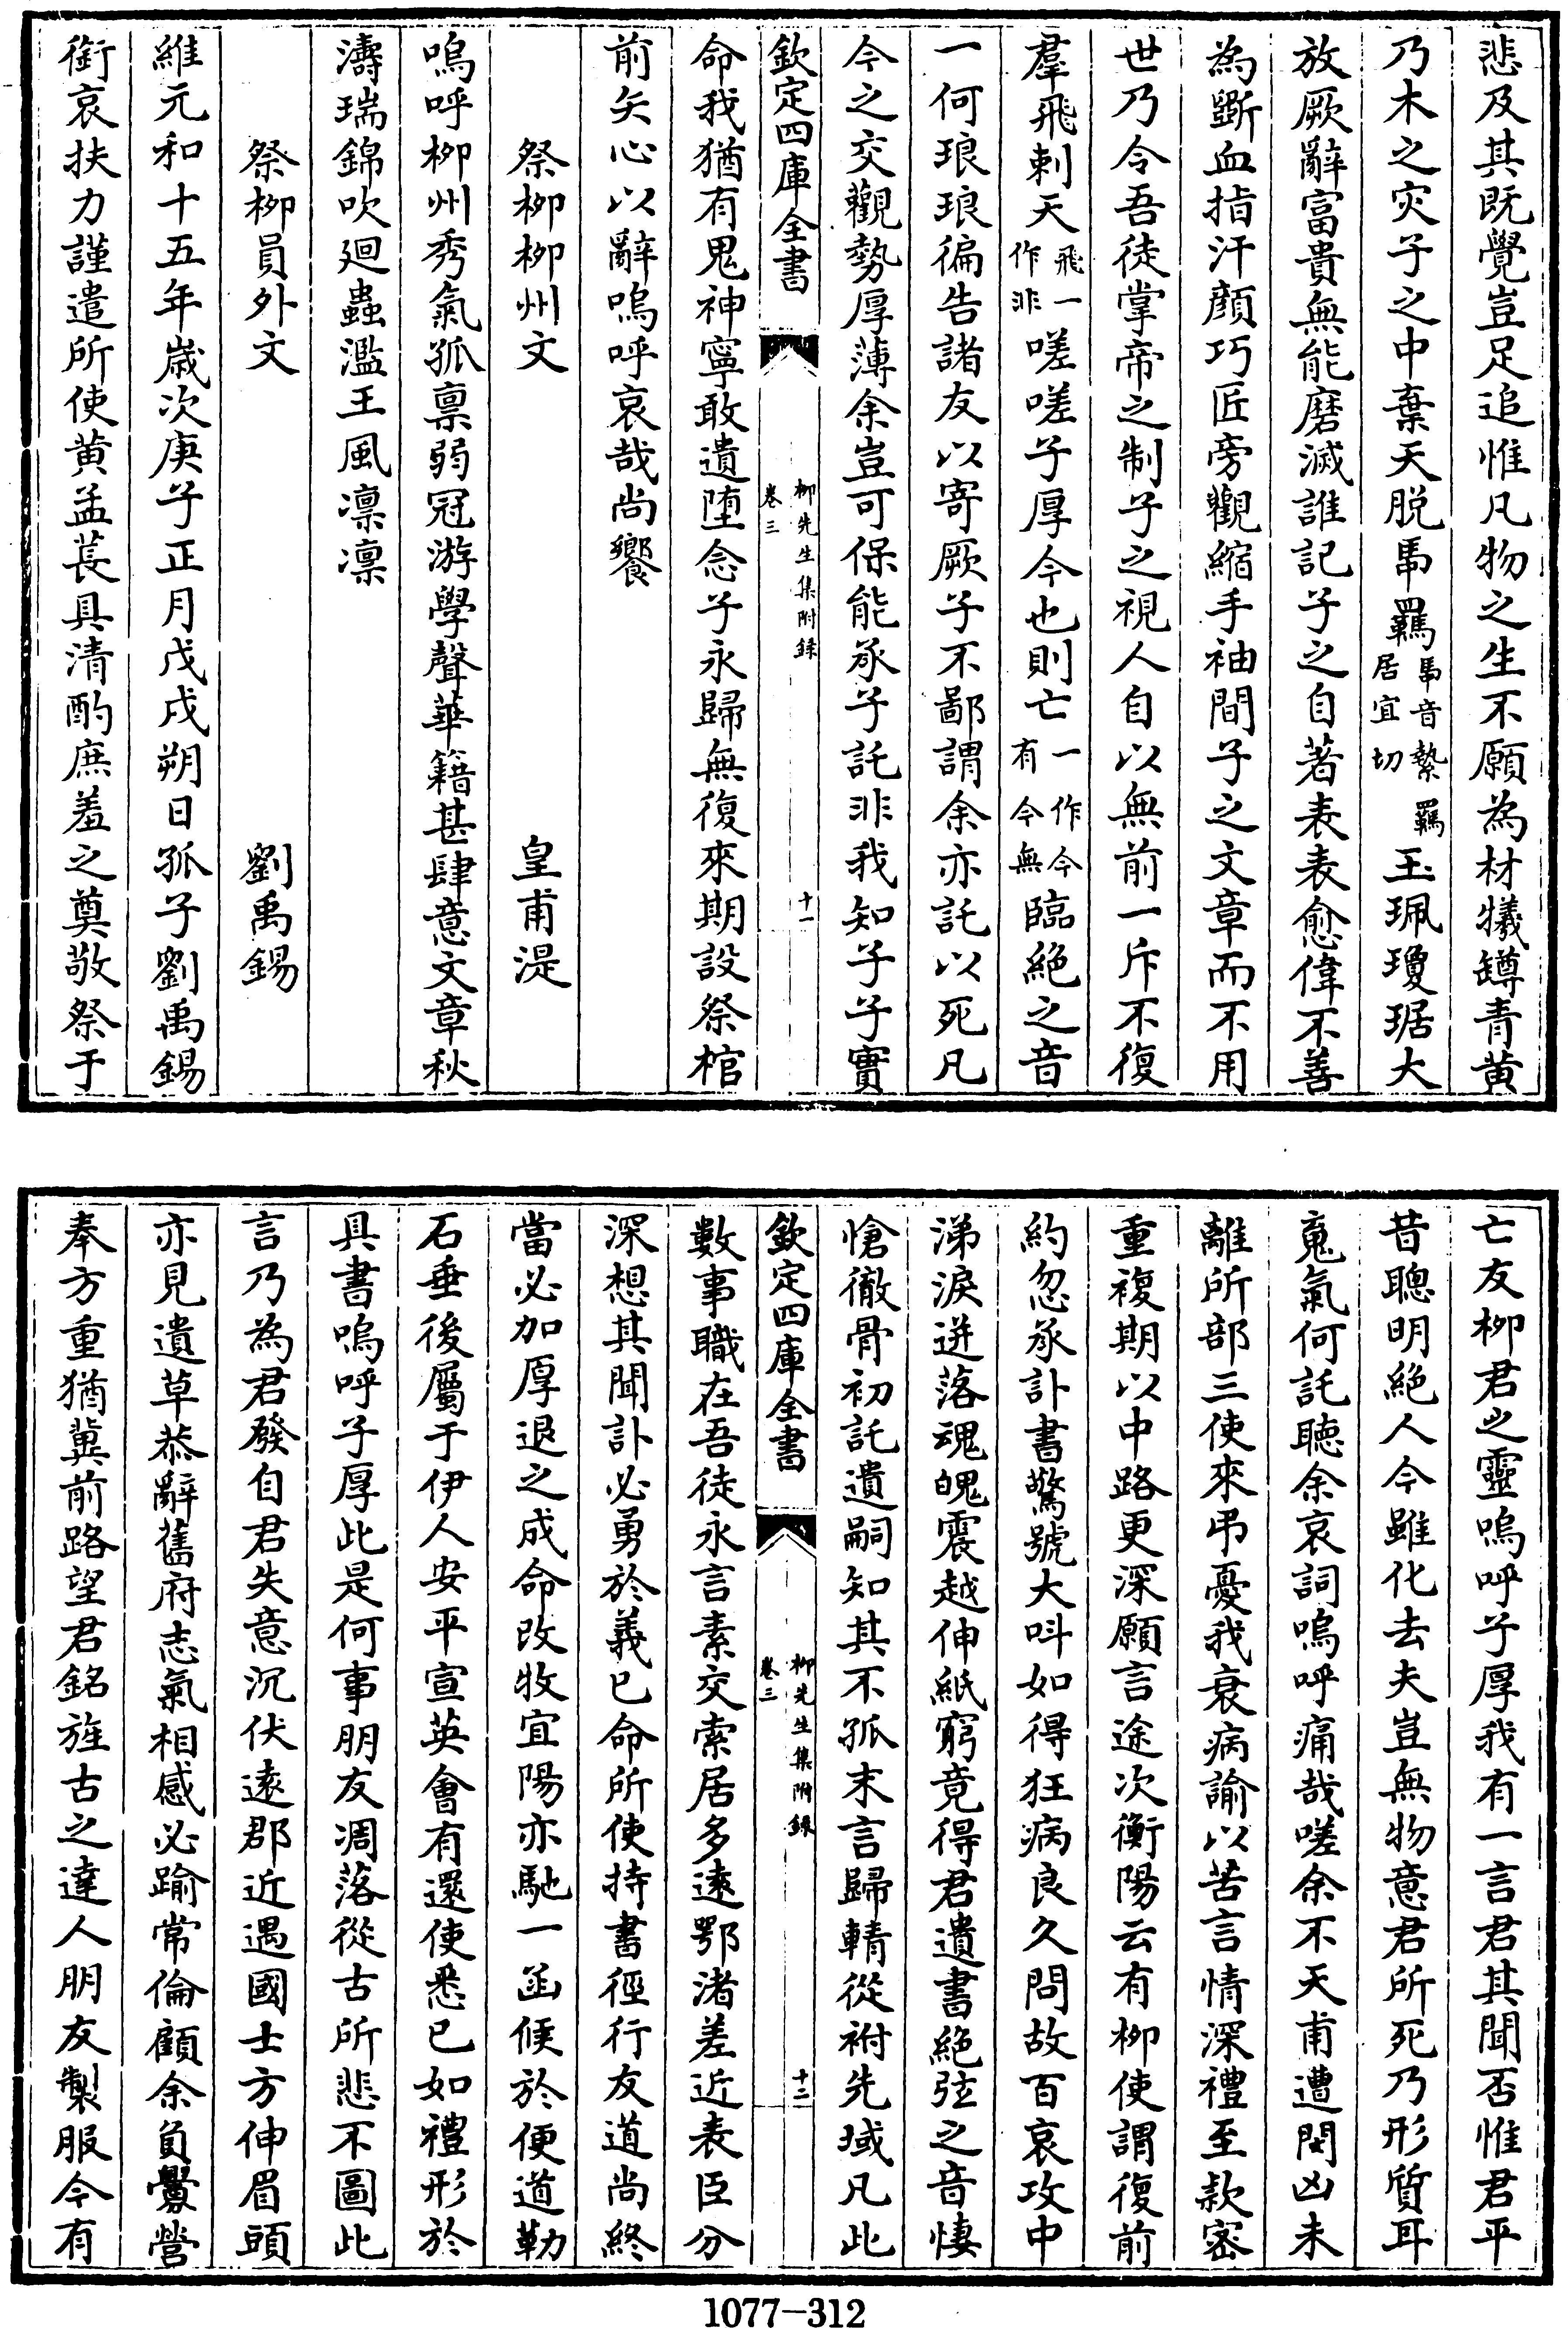 悲及其既覺豈足追惟凡物之生不願為材犧罇青黄
乃木之灾子之中棄天脱馽羈馽音縶羈居宜切玉珮瓊琚大
放厥辭富貴無能磨滅誰記子之自著表表愈偉不善
為斲血指汗顔巧匠旁觀縮手袖間子之文章而不用
世乃令吾徒掌帝之制子之視人自以無前一斥不復
羣飛刺天飛一作非嗟嗟子厚今也則亡一作今有今無臨絶之音
一何琅琅徧告諸友以寄厥子不鄙謂余亦託以死凡
今之交觀勢厚薄余豈可保能承子託非我知子子實
欽定四庫全書 柳先生集附錄 卷三 十一
命我猶有鬼神寧敢遺堕念子永歸無復來期設祭棺
前矢心以辭嗚呼哀哉尚饗
祭柳柳州文 皇甫湜
嗚呼柳州秀氣孤禀弱冠游學聲華籍甚肆意文章秋
濤瑞錦吹廻蟲濫王風凛凛
祭柳員外文 劉禹錫
維元和十五年歳次庚子正月戊戌朔日孤子劉禹錫
銜哀扶力謹遣所使黄孟萇具清酌庶羞之奠敬祭于
亡友柳君之靈嗚呼子厚我有一言君其聞否惟君平
昔聰明絶人今雖化去夫豈無物意君所死乃形質耳
魂氣何託聽余哀詞嗚呼痛哉嗟余不天甫遭閔凶未
離所部三使來弔憂我衰病諭以苦言情深禮至款密
重複期以中路更深願言途次衡陽云有柳使謂復前
約忽承訃書驚號大呌如得狂病良久問故百哀攻中
涕淚迸落魂魄震越伸紙窮竟得君遺書絶弦之音悽
愴徹骨初託遺嗣知其不孤末言歸輤從祔先域凡此
欽定四庫全書 柳先生集附錄 卷三 十二
數事職在吾徒永言素交索居多逺鄂渚差近表臣分
深想其聞訃必勇於義已命所使持書徑行友道尚終
當必加厚退之成命改牧宜陽亦馳一函候於便道勒
石垂後屬于伊人安平宣英會有還使悉已如禮形於
具書嗚呼子厚此是何事朋友凋落從古所悲不圖此
言乃為君發自君失意沉伏逺郡近遇國士方伸眉頭
亦見遺草恭辭舊府志氣相感必踰常倫顧余負釁營
奉方重猶冀前路望君銘旌古之達人朋友製服今有
1077—312